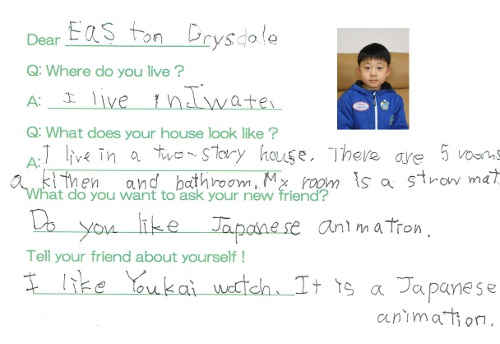 Dear Easton Drysdale
Q: Where do you live ?
A: I live in Iwate.
Q: What does your house look like ?
A: I live in a two-story house. There are 5 rooms
a kithen and bathroom. My room is a straw mat
What do you want to ask your new friend?
Do you like Japanese animation.
Tell your friend about yourself !
I like Youkai watch. It is a Japanese
animation.